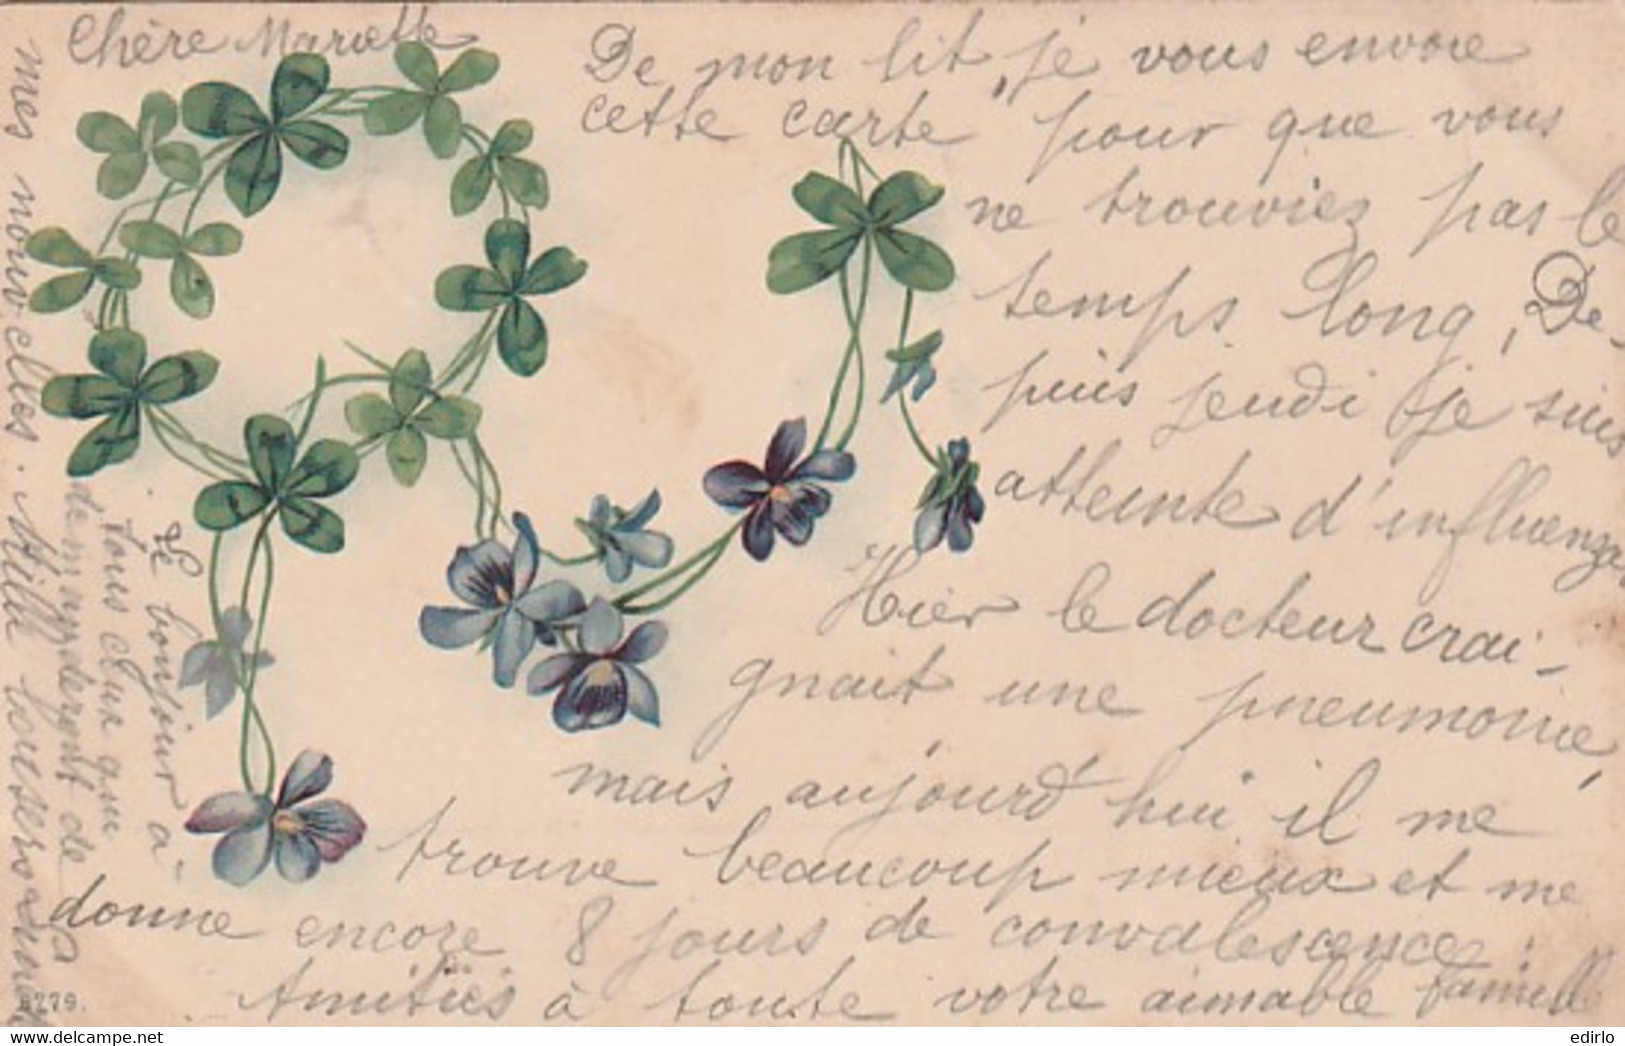 Chère Mariette
De mon lit, je vous envoie
cette carte pour que vous
ne trouviez pas le
temps long, De-
puis jeudi je suis
atteinte d'influenza
Hier le docteur crai-
gnait une pneumonie,
mais aujourd'hui il me
trouve beaucoup mieux et me
donne encore 8 jours de convalescence.
Amitiés à toute votre aimable famille
Le bonjour à
tous ceux qui
demanderont de
mes nouvelles. Mille baisers
6279.
© edirlo